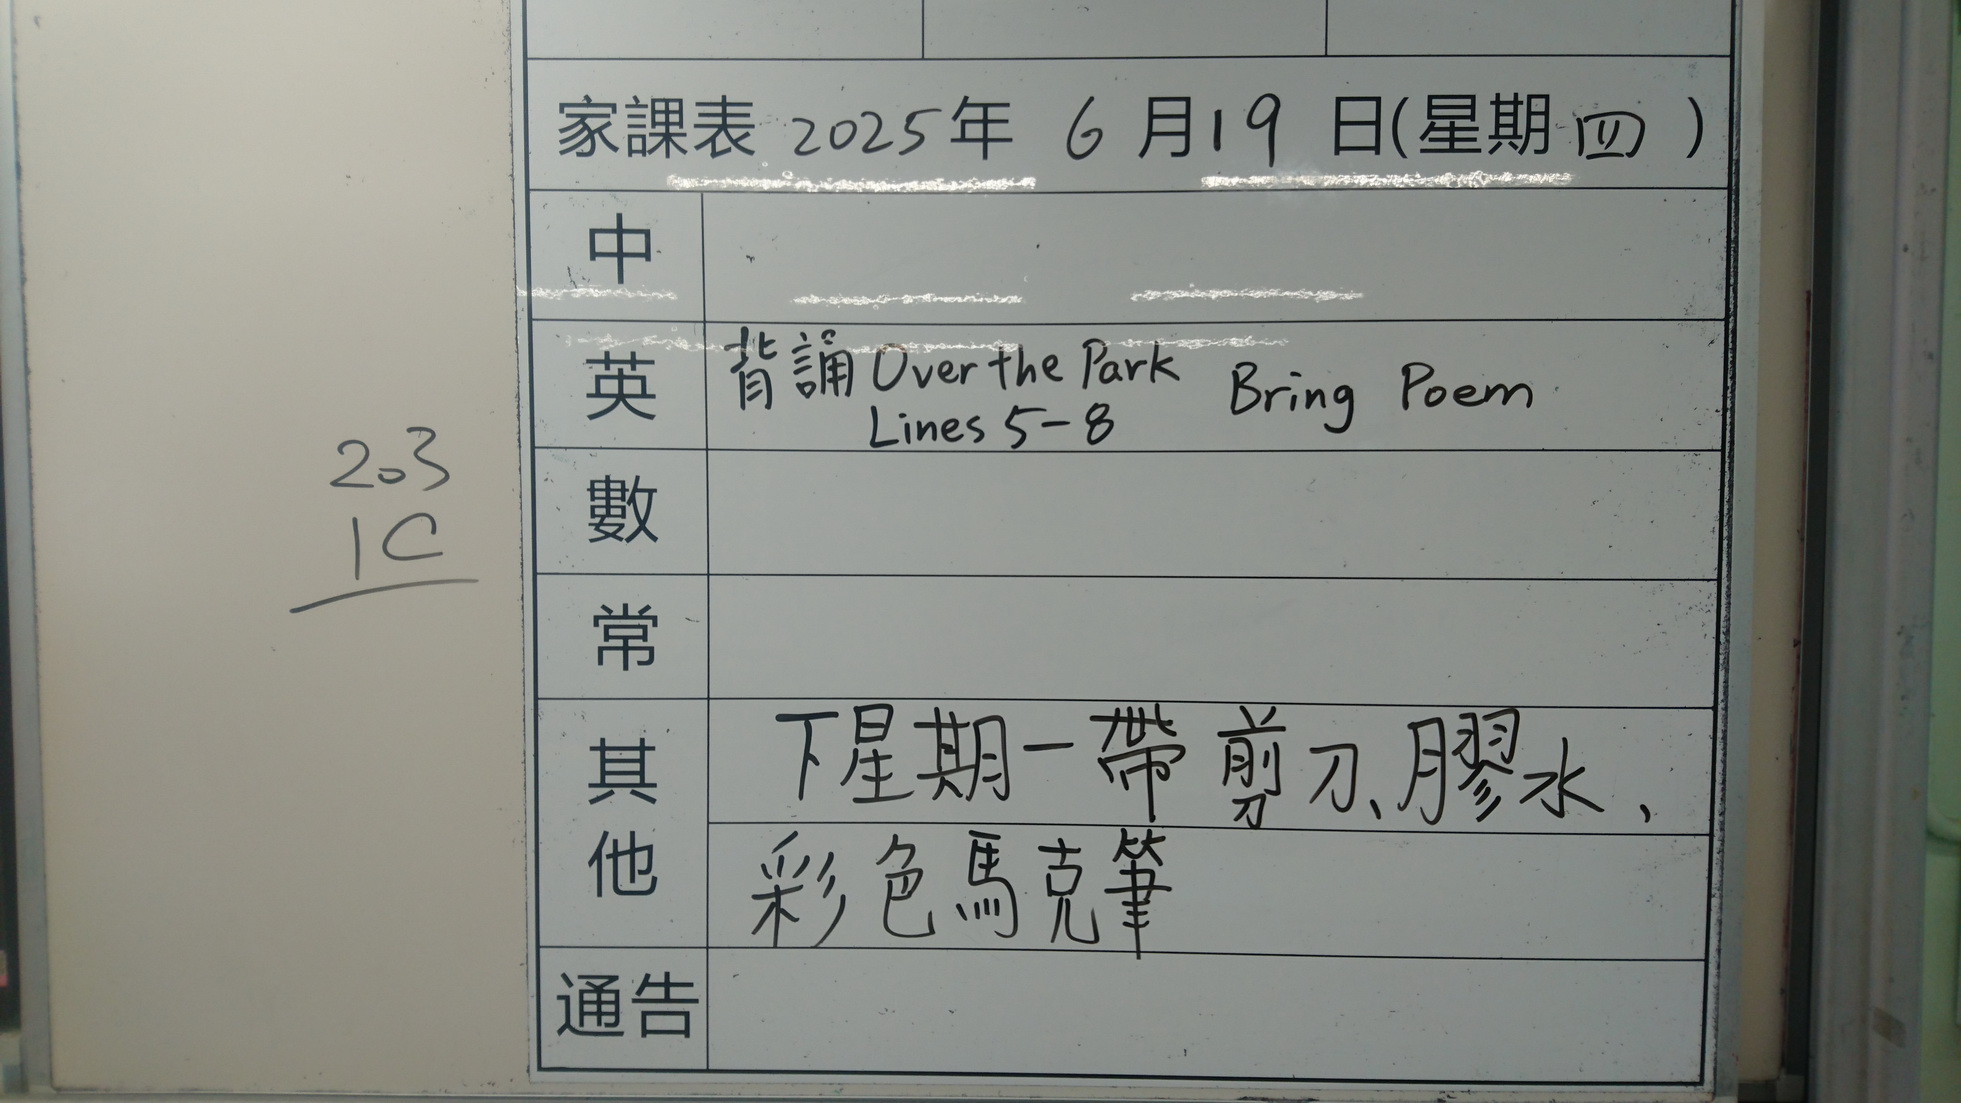 家課表 2025年 6月19日(星期四)
中
英 背誦 Over the Park Bring Poem
Lines 5-8
203
1C
數
常
其他 下星期一帶剪刀、膠水、
彩色馬克筆
通告